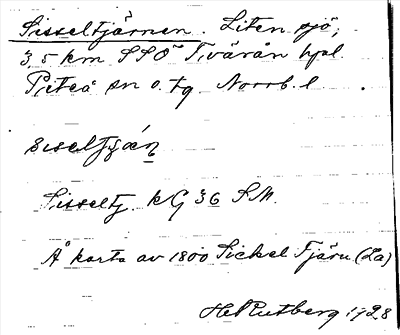 Sisseltjärnen. Liten sjö,
3,5 km SSO Tvärån hpl.
Piteå sn o. tg Norrb. l.
siseltjä́n
Sisseltj. KG 36 SM.
Å karta av 1800 Sickel Tjärn (La)
Hel Rutberg 1928